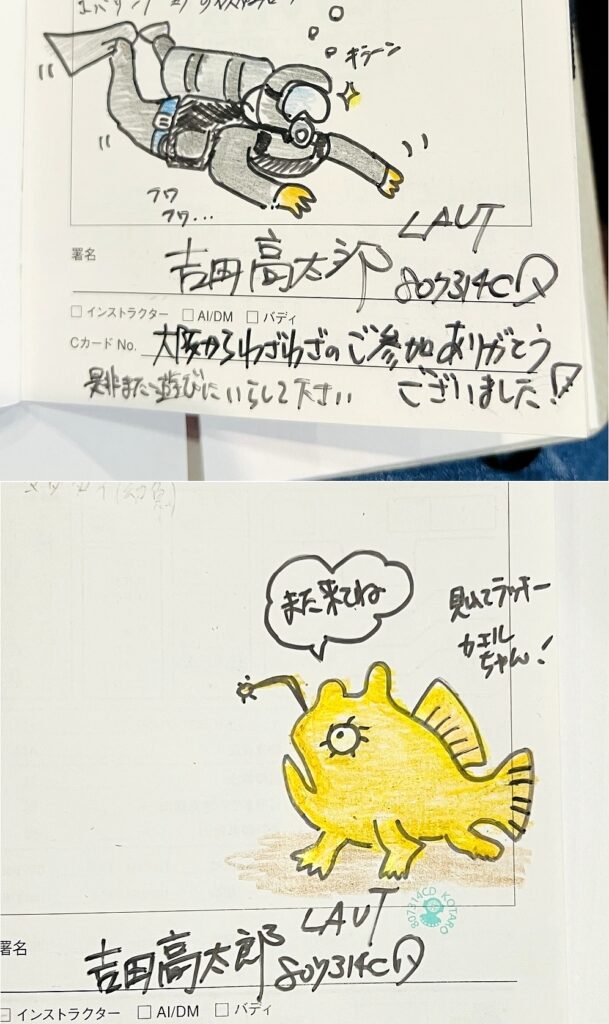 キラーン
フワ
フワ…
LAUT
署名
吉田高太郎
807314CD
□ インストラクター □ AI/DM □ バディ
Cカード No.
大阪からわざわざのご参加ありがとう
ございました!
是非また遊びにいらして下さい
また来てね
見れてラッキー
カエル
ちゃん!
LAUT
807314CD KOTARO
署名
吉田高太郎
807314CD
□ インストラクター □ AI/DM □ バディ